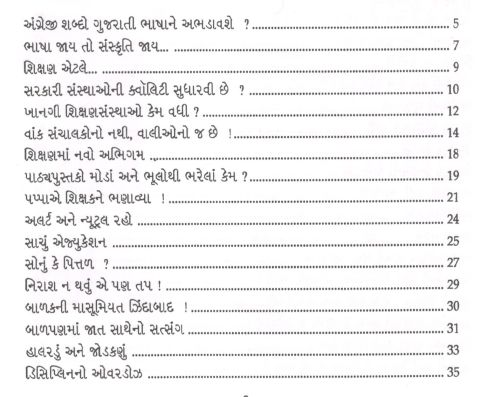 અંગ્રેજી શબ્દો ગુજરાતી ભાષાને અભડાવશે ? ........ 5
ભાષા જાય તો સંસ્કૃતિ જાય... ........ 7
શિક્ષણ એટલે... ........ 9
સરકારી સંસ્થાઓની ક્વૉલિટી સુધારવી છે ? ........ 10
ખાનગી શિક્ષણસંસ્થાઓ કેમ વધી ? ........ 12
વાંક સંચાલકોનો નથી, વાલીઓનો જ છે ! ........ 14
શિક્ષણમાં નવો અભિગમ ........ 18
પાઠ્યપુસ્તકો મોડાં અને ભૂલોથી ભરેલાં કેમ ? ........ 19
પપ્પાએ શિક્ષકને ભણાવ્યા ! ........ 21
અલર્ટ અને ન્યૂટ્રલ રહો ........ 24
સાચું એજ્યુકેશન ........ 25
સોનું કે પિત્તળ ? ........ 27
નિરાશ ન થવું એ પણ તપ ! ........ 29
બાળકની માસૂમિયત ઝિંદાબાદ ! ........ 30
બાળપણમાં જાત સાથેનો સત્સંગ ........ 31
હાલરડું અને જોડકણું ........ 33
ડિસિપ્લિનનો ઓવરડોઝ ........ 35